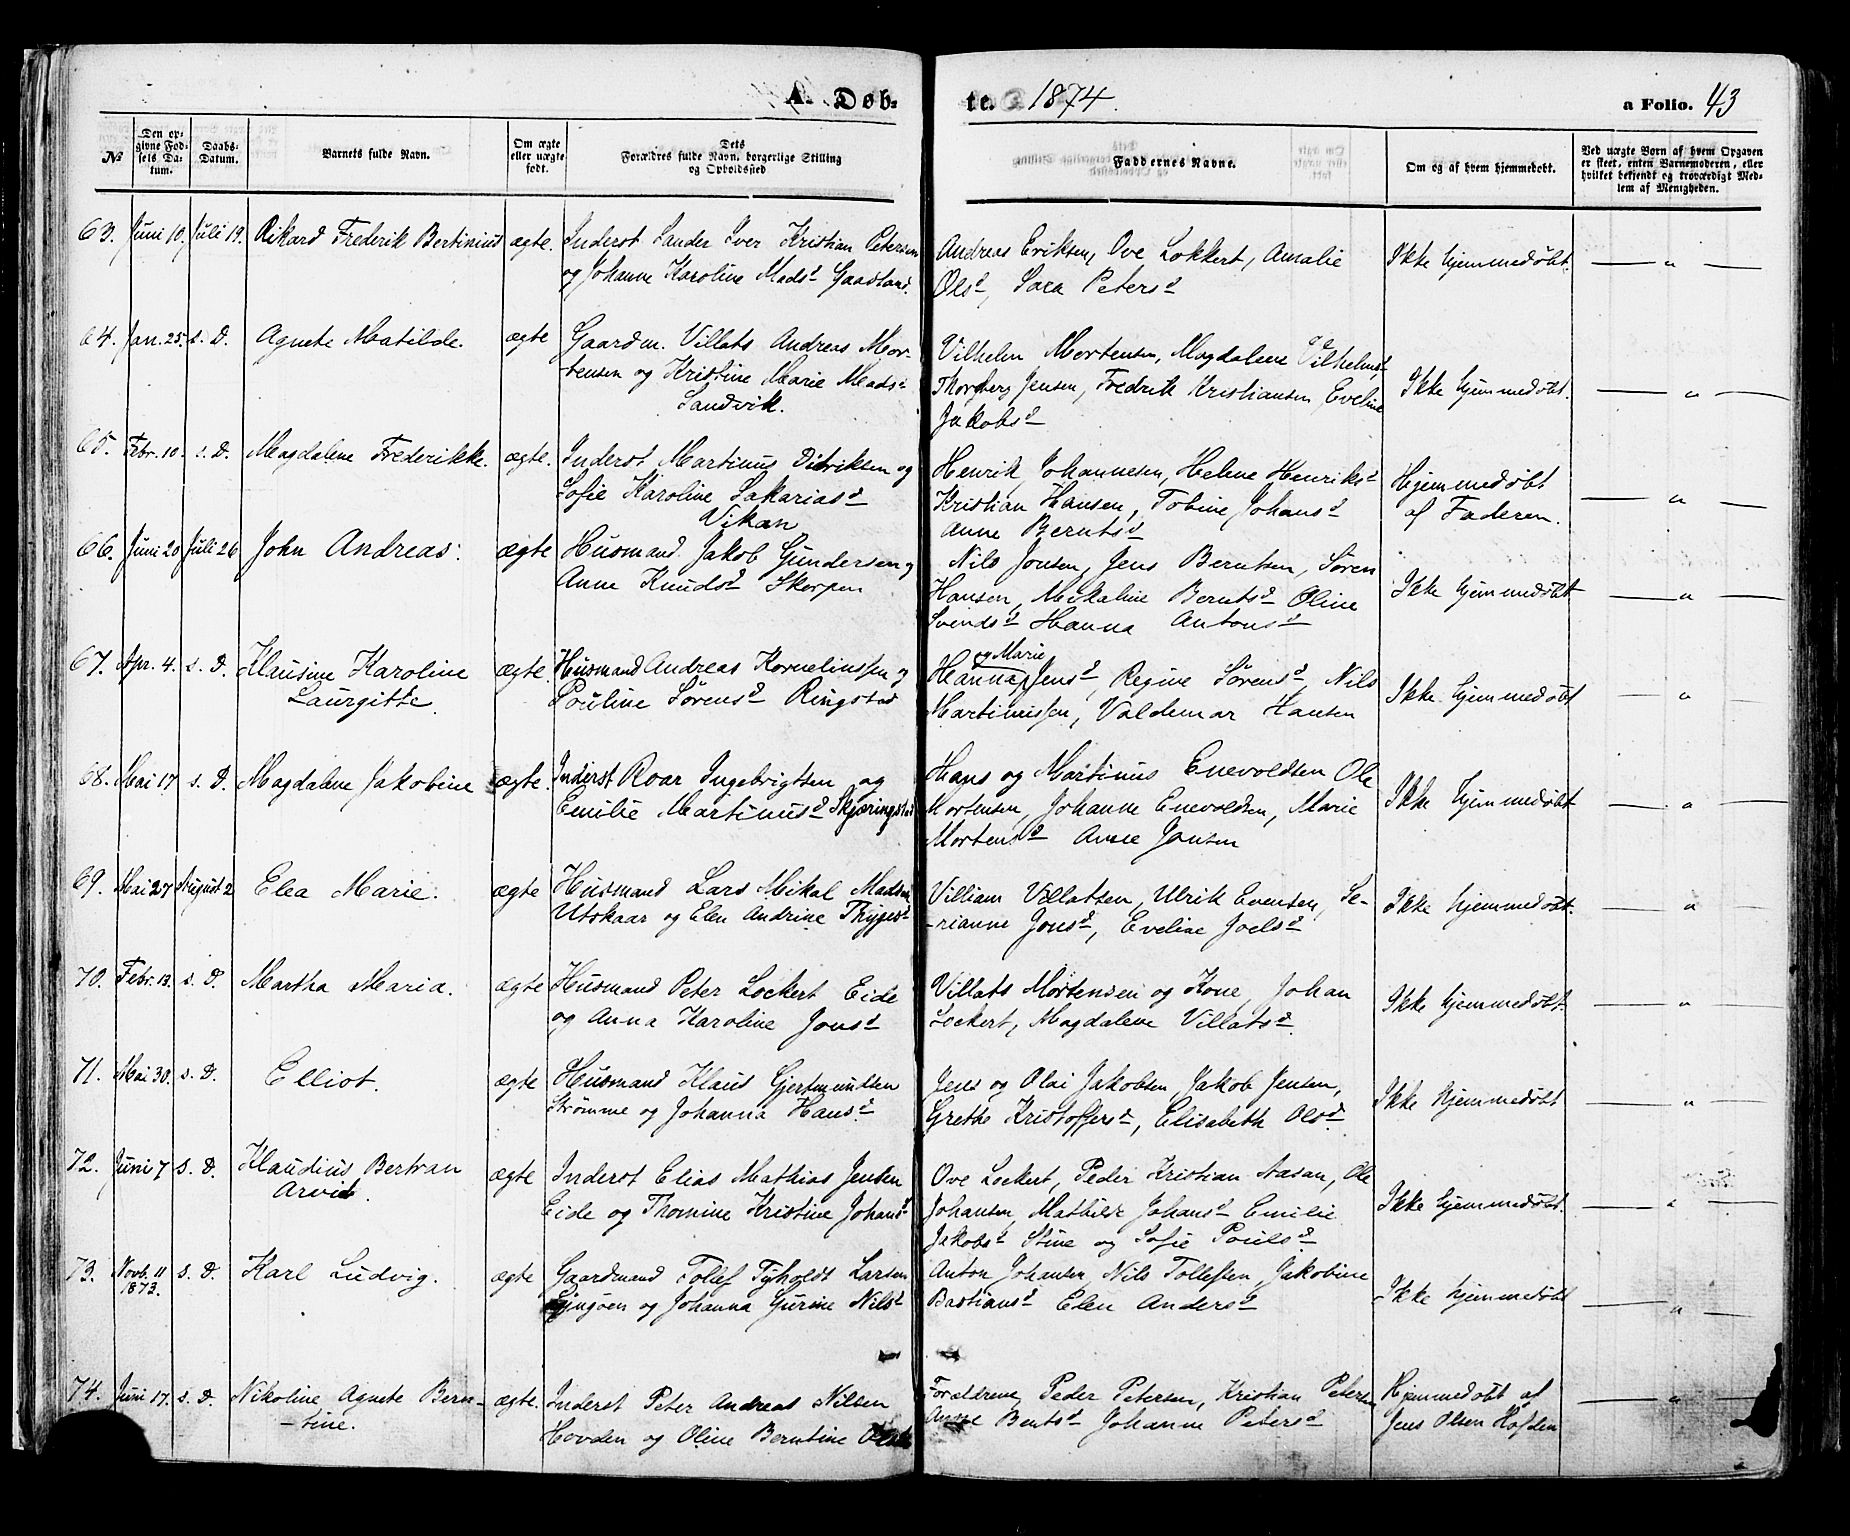 A. Døb- te. 1874. a Folio. 43
№ Den opgivne Fødsels Datum. Daabs-Datum. Barnets fulde Navn. Om ægte eller uægte født. Dets Forældres fulde Navn, borgerlige Stilling og Opholdssted Faddernes Navne. Om og af hvem hjemmedøbt. Ved uægte Børn af hvem Opgaven er skeet, enten Barnemoderen, eller hvilket bekjendt og troværdigt Medlem af Menigheden.
63. Juni 10. Juli 19. Rikard Frederik Bertinius ægte. Inderst Sander Iver Kristian Petersen Andreas Eriksen, Ove Lokkert, Amalie Ikke hjemmedøbt. — " —
og Johanne Karoline Madsd Gaadland. Olsd, Sara Petersd
64. Jan. 25. s. D. Agnete Matilde. ægte Gaardm. Villats Andreas Mor- Vilhelm Mortensen, Magdalene Vilhelmsd Ikke hjemmedøbt. — " —
-tensen og Kristine Marie Madsd Thorberg Jensen, Fredrik Kristiansen, Eveline
Sandvik. Jakobsd
65. Febr. 10. s. D. Magdalene Frederikke. ægte. Inderst Martinus Didriksen og Henrik Johannesen, Helene Henriksd Hjemmedøbt — " —
Sofie Karoline Sakariasd Kristian Hansen, Tobine Johansd af Faderen.
Vikan Anne Berntsd
66. Juni 20 Juli 26 John Andreas. ægte Husmand Jakob Gundersen og Nils Jonsen, Jens Berntsen, Søren Ikke hjemmedøbt — " —
Anne Knudsd Skorpen Hansen, Mikaline Berntsd Oline
Svendsd Hanna Antonsd
67. Apr. 4. s. D. Klausine Karoline ægte. Husmand Andreas Kornelinssen og Hanna og Marie Jensd, Regine Sørensd, Nils Ikke hjemmedøbt — " —
Laurgitte. Pouline Sørensd Ringstad Martinussen, Valdemar Hansen
68. Mai 17 s. D. Magdalene Jakobine ægte. Inderst Roar Ingebrigtsen og Hans og Martinus Enevoldsen Ole Ikke hjemmedøbt — " —
Emilie Martinusd Skjæringstad Mortensen, Johanne Enevoldsen, Marie
Mortensd Anne Jonsen
69. Mai 27 August 2 Elea Marie. ægte Husmand Lars Mikal Madsen Villiam Villatsen, Ulrik Evensen, Se- Ikke hjemmedøbt. — " —
Utskaar og Elen Andrine Thygesd -rianne Jonsd, Eveline Joelsd
70. Febr. 13. s. D. Martha Maria. ægte Husmand Peter Lockert Eide Villats Mortensen og Kone, Johan Ikke hjemmedøbt. — " —
og Anna Karoline Jonsd Lockert, Magdalene Villatsd.
71. Mai 30. s. D. Elliot. ægte Husmand Klaus Gjertmundsen Jens og Olai Jakobsen, Jakob Jensen, Ikke hjemmedøbt — " —
Strømme og Johanna Hansd. Grethe Kristoffersd, Elisabeth Olsd.
72. Juni 7 s. D. Klaudius Bertran ægte Inderst Elias Mathias Jensen Ove Lockert, Peder Kristian Aasan, Ole Ikke hjemmedøbt. — " —
Arvid. Eide og Thomine Kristine Johansd Johansen, Mathilde Johansd Emilie
Jakobsd Stine og Sofie Poulsd
73. Novb. 11 1873. s. D. Karl Ludvig. ægte Gaardmand Tollef Tyholdt Larsen Anton Johansen, Nils Tollefsen, Jakobine Ikke hjemmedøbt — " —
og Johanna Gurine Nilsd Bastiansd Elen Andersd
74. Juni 17. s. D. Nikoline Agnete Bern- ægte. Inderst Peter Andreas Nilsen Forældrene, Peder Petersen, Kristian Petersen Hjemmedøbt af — " —
-tine. Hovden og Oline Berntine Anne Bentsd Johanne Petersd Jens Olsen Hofden